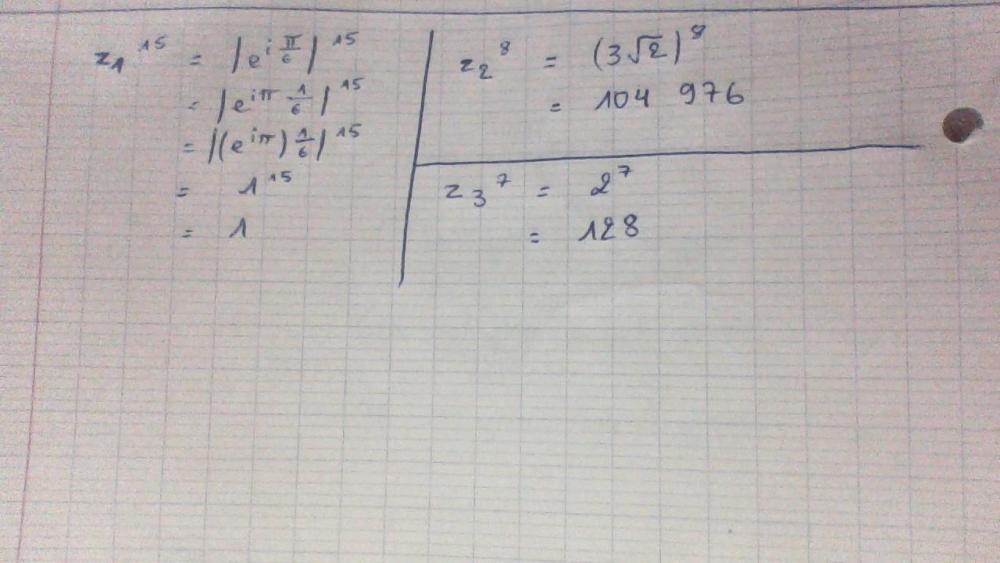 z₁¹⁵ = |e^{i π/6}|¹⁵
= |e^{iπ 1/6}|¹⁵
= |(e^{iπ})^{1/6}|¹⁵
= 1¹⁵
= 1
z₂⁸ = (3√2)⁸
= 104 976
z₃⁷ = 2⁷
= 128